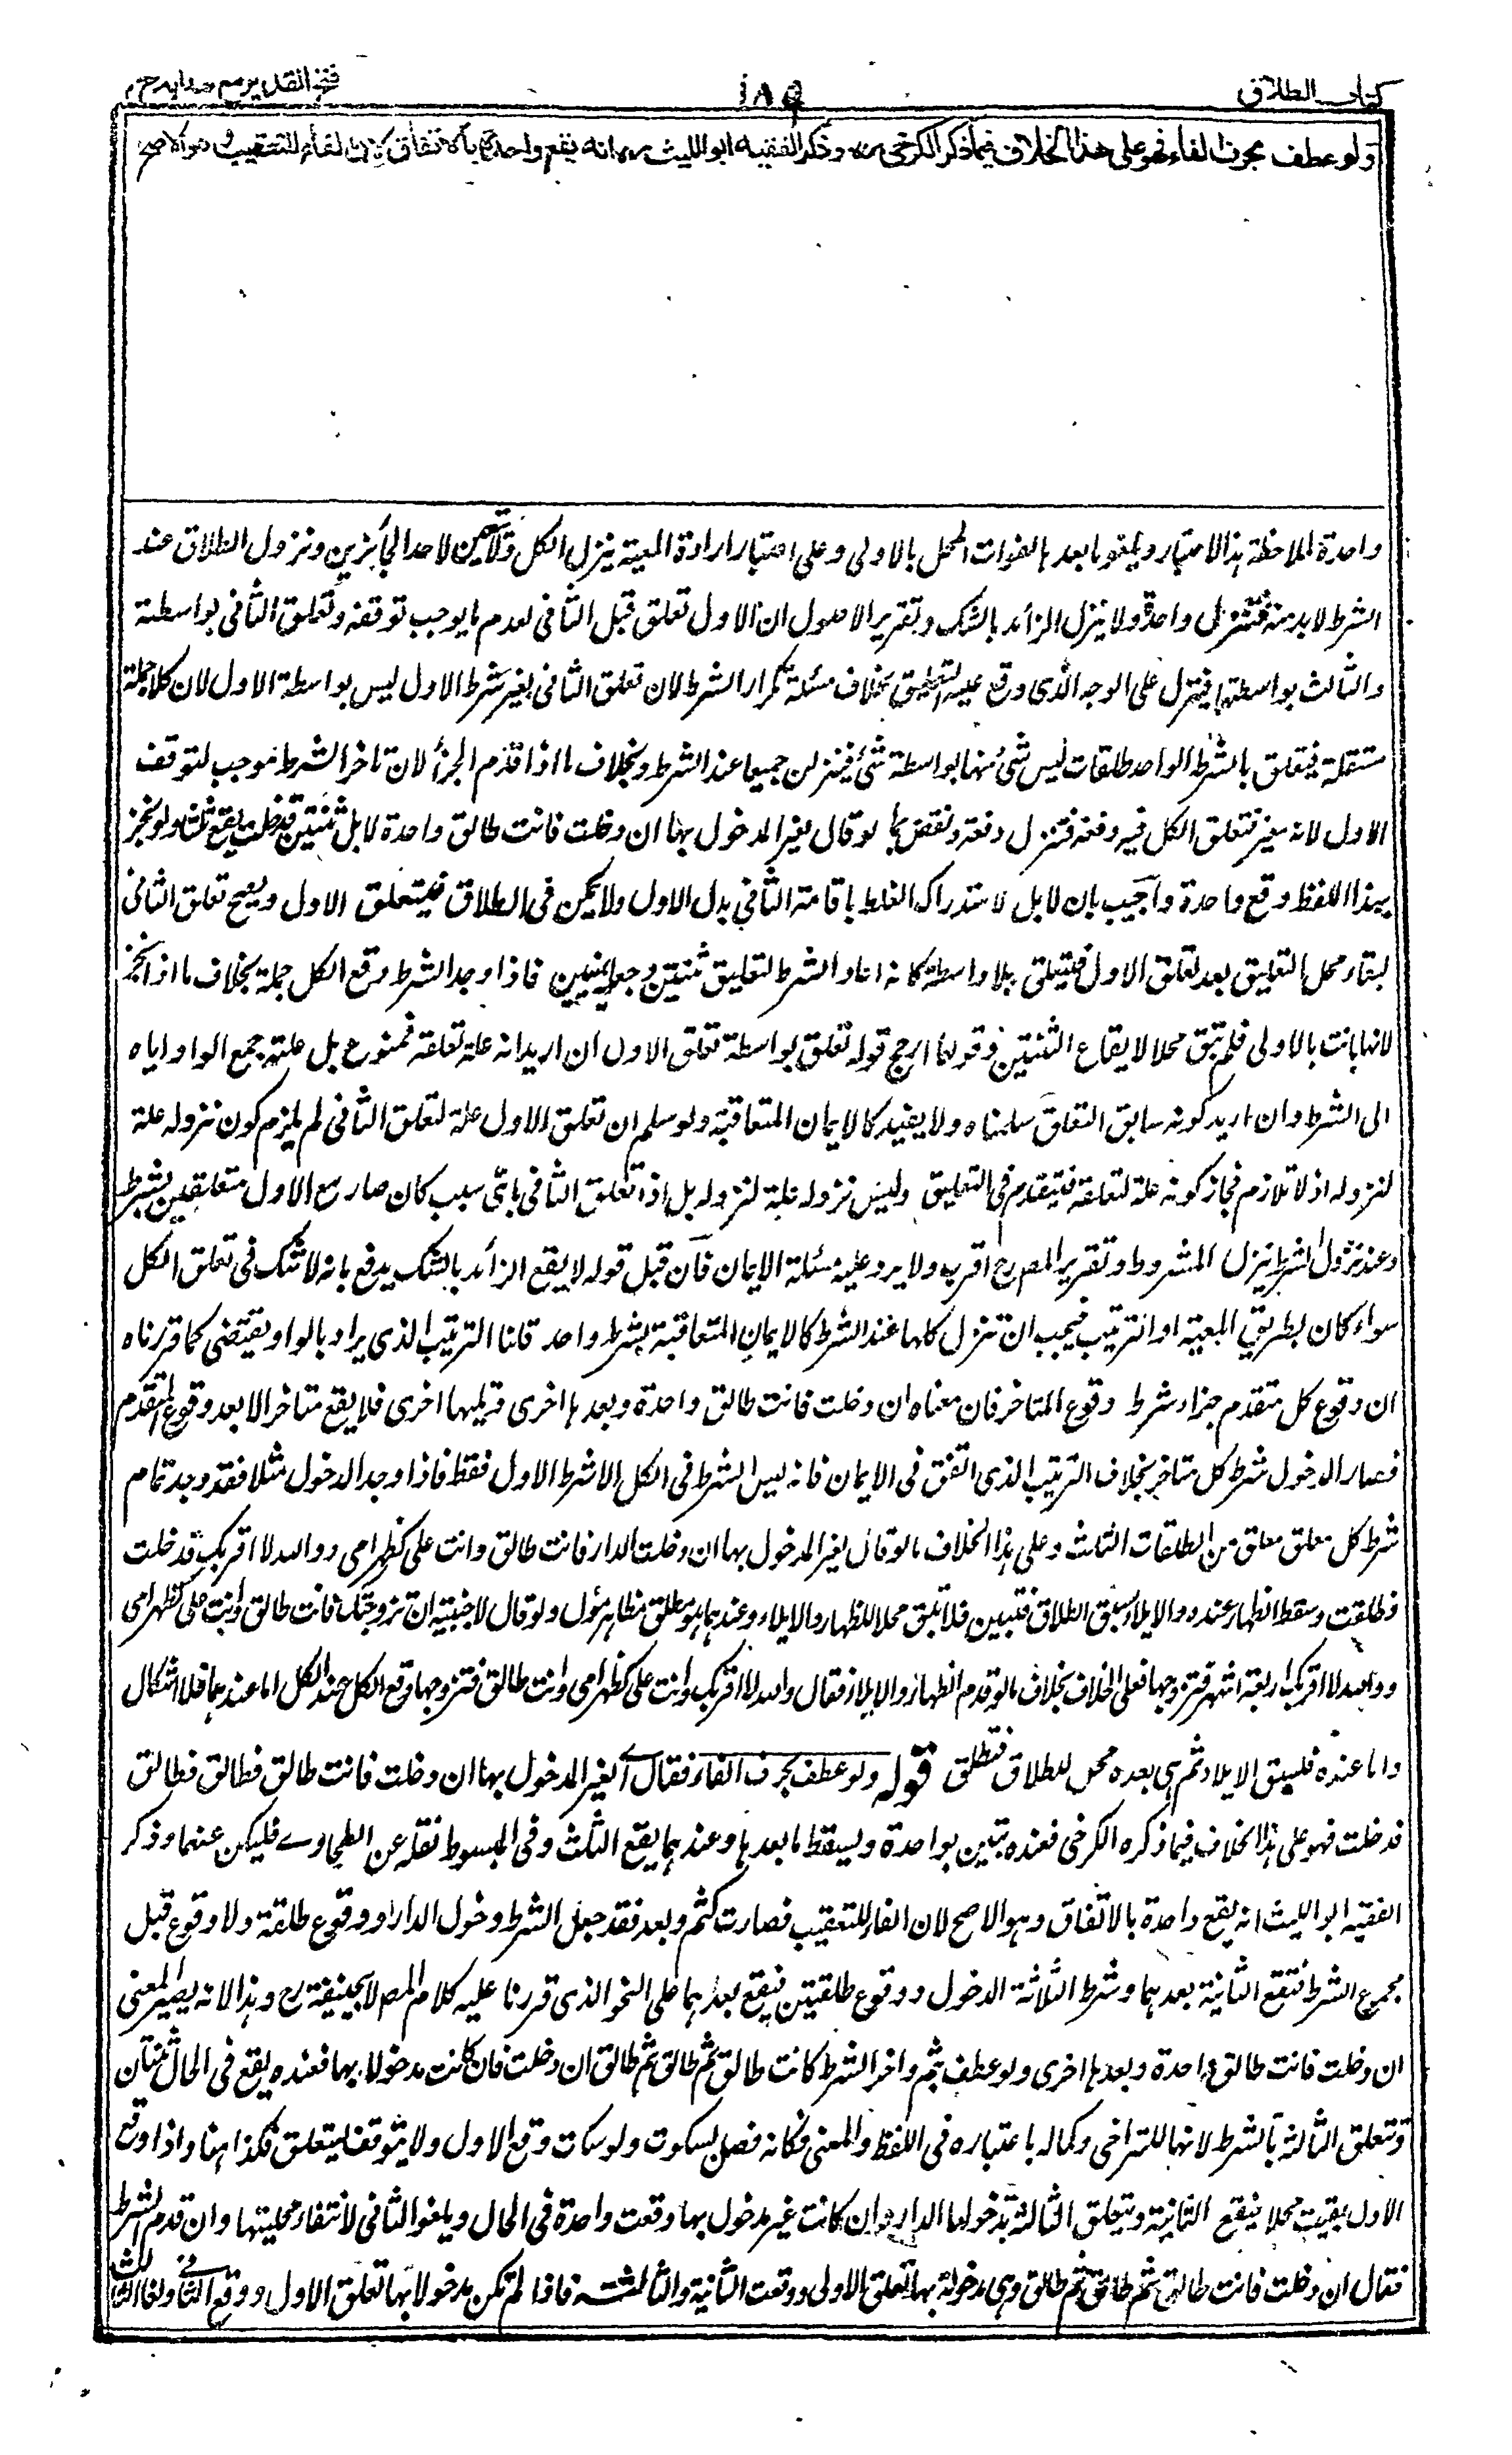 كتاب الطلاق ١٨٥ فتح القدير مع هدايه ج ٢
ولو عطف بحرف الفاء فهو على هذا الخلاف فيما ذكر الكرخي رح وذكر الفقيه ابو الليث رح انه يقع واحدة بالاتفاق لان الفاء للتعقيب وهو الاصح
واحدة لملاحظة هذا الاعتبار ويلغو ما بعدها لفوات المحل بالاولى وعلى اعتبار ارادة المعية ينزل الكل ولا تعين لاحد الجائزين ونزول الطلاق عند
الشرط لا بد منه فتنزل واحدة ولا ينزل الزائد بالشك وتقرير الاصول ان الاول تعلق قبل الثانى لعدم ما يوجب توقفه وتعلق الثانى بواسطته
والثالث بواسطتهما فينزل على الوجه الذى وقع عليه التعليق بخلاف مسئلة تكرار الشرط لان تعلق الثانى بغير شرط الاول ليس بواسطة الاول لان كلا جملة
مستقلة فيتعلق بالشرط الواحد طلقات ليس شئ منها بواسطة شئ فينزلن جميعا عند الشرط وبخلاف ما اذا قدم الجزأ لان تاخر الشرط موجب لتوقف
الاول لانه مغير فتعلق الكل فيه دفعة فتنزل دفعة ونقض بما لو قال لغير المدخول بها ان دخلت فانت طالق واحدة لا بل ثنتين فدخلت يقع ثلث ولو نجز
بهذا اللفظ وقع واحدة واجيب بان لا بل لاستدراك الغلط باقامة الثانى بدل الاول ولا يمكن فى الطلاق فيتعلق الاول ويصح تعلق الثانى
لبقاء محل التعليق بعد تعلق الاول فيتعلق بلا واسطة كانه اعاد الشرط لتعليق ثنتين وجعله يمينين فاذا وجد الشرط وقع الكل جملة بخلاف ما اذا نجز
لانها بانت بالاولى فلم تبق محلا لايقاع الثنتين وقولهما ارجح قوله تعلق بواسطة تعلق الاول ان اريد انه علة تعلقه فممنوع بل علته جمع الواو اياه
الى الشرط وان اريد كونه سابق التعلق سلمناه ولا يفيد كالايمان المتعاقبة ولو سلم ان تعلق الاول علة لتعلق الثانى لم يلزم كون نزوله علة
لنزوله اذ لا تلازم فجاز كونه علة لتعلقه فيتقدم فى التعليق وليس نزوله علة لنزوله بل اذا تعلق الثانى باى سبب كان صار مع الاول متعلقين بشرط
وعند نزول الشرط ينزل المشروط وتقرير المص رح اقرب ولا يرد عليه مسئلة الايمان فان قيل قوله لا يقع الزائد بالشك يدفع بانه لا شك فى تعلق الكل
سواء كان بطريق المعية او الترتيب فيجب ان تنزل كلها عند الشرط كالايمان المتعاقبة بشرط واحد قلنا الترتيب الذى يراد بالواو يقتضى كما قررناه
ان وقوع كل متقدم جزاء شرط وقوع المتاخر فان معناه ان دخلت فانت طالق واحدة وبعدها اخرى تليها اخرى فلا يقع متاخر الا بعد وقوع المتقدم
فصار الدخول شرط كل متاخر بخلاف الترتيب الذى اتفق فى الايمان فانه ليس الشرط فى الكل الا شرط الاول فقط فاذا وجد الدخول مثلا فقد وجد تمام
شرط كل معلق معلق من الطلقات الثلث وعلى هذا الخلاف ما لو قال لغير المدخول بها ان دخلت الدار فانت طالق وانت على كظهر امى ووالله لا اقربك فدخلت
وطلقت وسقط الظهار عنده والايلاء لسبق الطلاق فتبين فلا تبق محلا للظهار والايلاء وعندهما هو مطلق مظاهر مول ولو قال لاجنبية ان تزوجتك فانت طالق وانت على كظهر امى
ووالله لا اقربك اربعة اشهر فتزوجها فعلى الخلاف بخلاف ما لو قدم الظهار والايلاء فقال والله لا اقربك وانت على كظهر امى وانت طالق فتزوجها وقع الكل عند الكل اما عندهما فلا اشكال
واما عنده فلسبق الايلاء ثم هى بعده محل للطلاق فتطلق قوله ولو عطف بحرف الفاء فقال اى لغير المدخول بها ان دخلت فانت طالق فطالق فطالق
فدخلت فهو على هذا الخلاف فيما ذكره الكرخى فعنده تبين بواحدة ويسقط ما بعدها وعندهما يقع الثلث وفى المبسوط نقله عن الطحاوى فليكن عنهما وذكر
الفقيه ابو الليث انه يقع واحدة بالاتفاق وهو الاصح لان الفاء للتعقيب فصارت كثم وبعد فقد جعل الشرط دخول الدار ووقوع طلقة ولا وقوع قبل
مجموع الشرط فتقع الثانية بعدهما وشرط الثالثة الدخول ووقوع طلقتين فيقع بعدهما على النحو الذى قررنا عليه كلام المص لابيحنيفة رح وهذا لانه يصير المعنى
ان دخلت فانت طالق واحدة وبعدها اخرى ولو عطف بثم واخر الشرط كانت طالق ثم طالق ثم طالق ان دخلت فان كانت مدخولا بها فعنده يقع فى الحال ثنتان
وتتعلق الثالثة بالشرط لانها للتراخى وكماله باعتباره فى اللفظ والمعنى فكانه فصل بسكوت ولو سكت وقع الاول ولا يتوقف ليتعلق فكذا هنا واذا وقع
الاول بقيت محلا فيقع الثانية وتتعلق الثالثة بدخولها الدار وان كانت غير مدخول بها وقعت واحدة فى الحال ويلغو الثانى لانتفاء محليتها وان قدم الشرط
فقال ان دخلت فانت طالق ثم طالق ثم طالق وهى مدخولة بها تعلق الاولى ووقعت الثانية والثالثة فاذا لم تكن مدخولا بها تعلق الاول ووقع الثانى ولغا الثالث